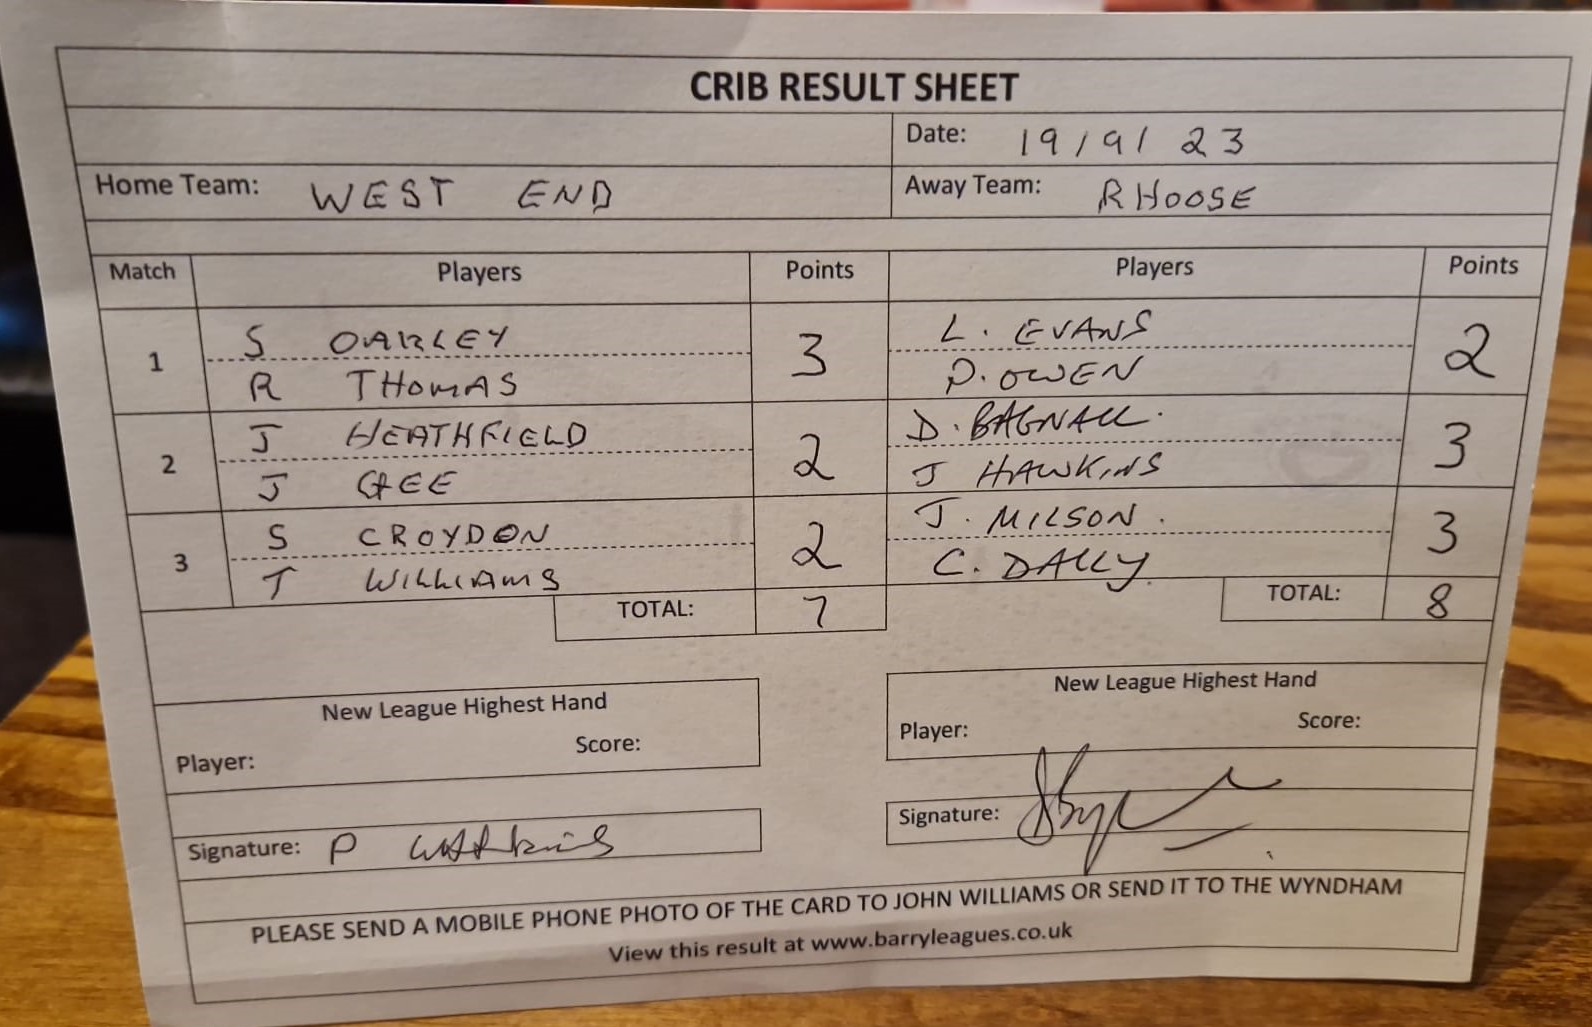 CRIB RESULT SHEET
Date: 19/9/23
Home Team: WEST END Away Team: RHOOSE
Match Players Points Players Points
S OAKLEY L. EVANS
1 3 2
R THOMAS D. OWEN
J HEATHFIELD D. BAGNALL.
2 2 3
J GEE J HAWKINS
S CROYDON J. MILSON.
3 2 3
T WILLIAMS C. DALLY
TOTAL: 7 TOTAL: 8
New League Highest Hand New League Highest Hand
Player: Score: Player: Score:
Signature: P Watkins Signature:
PLEASE SEND A MOBILE PHONE PHOTO OF THE CARD TO JOHN WILLIAMS OR SEND IT TO THE WYNDHAM
View this result at www.barryleagues.co.uk